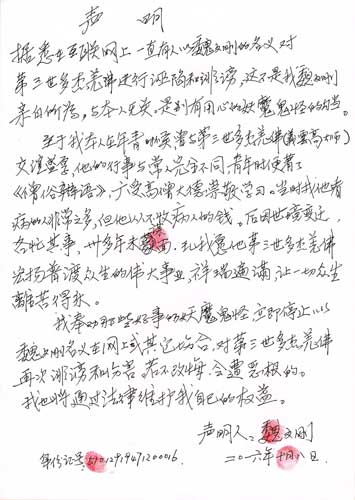 声明
据悉在互联网上一直有人以魏文刚的名义对
第三世多杰羌佛进行诬陷和诽谤,这不是我魏文刚
亲自所为,与本人无关,是别有用心的妖魔鬼怪的勾当。
至于我本人在年青时候曾与第三世多杰羌佛(义云高大师)
交谊甚厚,他的行事与常人完全不同,青年时便著了
《僧俗辩语》,广受高僧大德崇敬学习。当时找他看
病的人非常之多,但他从不收病人的钱。后因世境变迁,
各忙其事,卅多年未蒙面。现我意他第三世多杰羌佛
宏扬普渡众生的伟大事业,祥瑞遍满,让一切众生
离苦得永。
我奉劝那些好事的妖魔鬼怪立即停止以
魏文刚名义在网上或其它场合,对第三世多杰羌佛
再次诽谤和伤害。若不改悔,会遭恶报的。
我也将通过法律维护我自己的权益。
声明人:魏文刚
身份证号:51012919471200016
二〇一六年十月八日